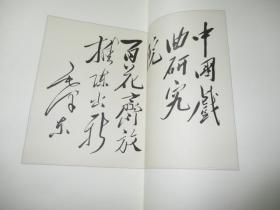 中國戲
曲研究
院
百花齊放
推陈出新
毛泽东